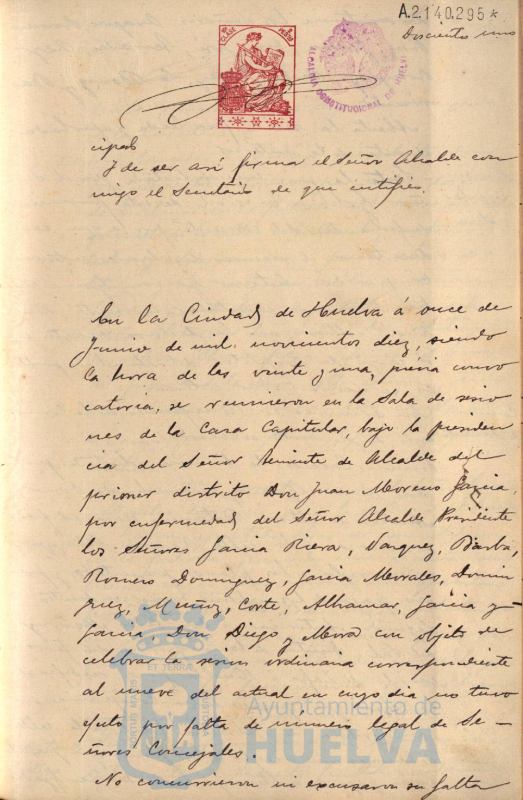 A.2140.295*
Doscientos uno
9ª CLASE
1 PESETA
ALCALDIA CONSTITUCIONAL DE HUELVA
cipal.
Y de ser asi firma el Señor Alcalde con
migo el Secretario de que certifico.
En la Ciudad de Huelva á once de
Junio de mil novecientos diez, siendo
la hora de las veinte y una, prévia convo
catoria, se reunieron en la Sala de sesio
nes de la Casa Capitular, bajo la presiden
cia del Señor teniente de Alcalde del
primer distrito Don Juan Moreno Garcia,
por enfermedad del Señor Alcalde Presidente
los Señores Garcia Riera, Vazquez, Barba,
Romero Dominguez, Garcia Morales, Domin
guez, Muñoz, Corte, Alhamar, Garcia y
Garcia, Don Diego y Mora con objeto de
celebrar la sesion ordinaria correspondiente
al nueve del actual en cuyo dia no tuvo
efecto por falta de número legal de Se-
ñores Concejales.
No concurrieron ni excusaron su falta
Ayuntamiento de
HUELVA